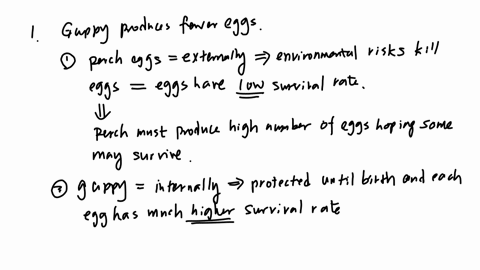 1. Guppy produces fewer eggs.
① perch eggs = externally ⇒ environmental risks kill
eggs = eggs have low survival rate.
⇓
Perch must produce high number of eggs hoping some
may survive.
② guppy = internally ⇒ protected until birth and each
egg has much higher survival rate